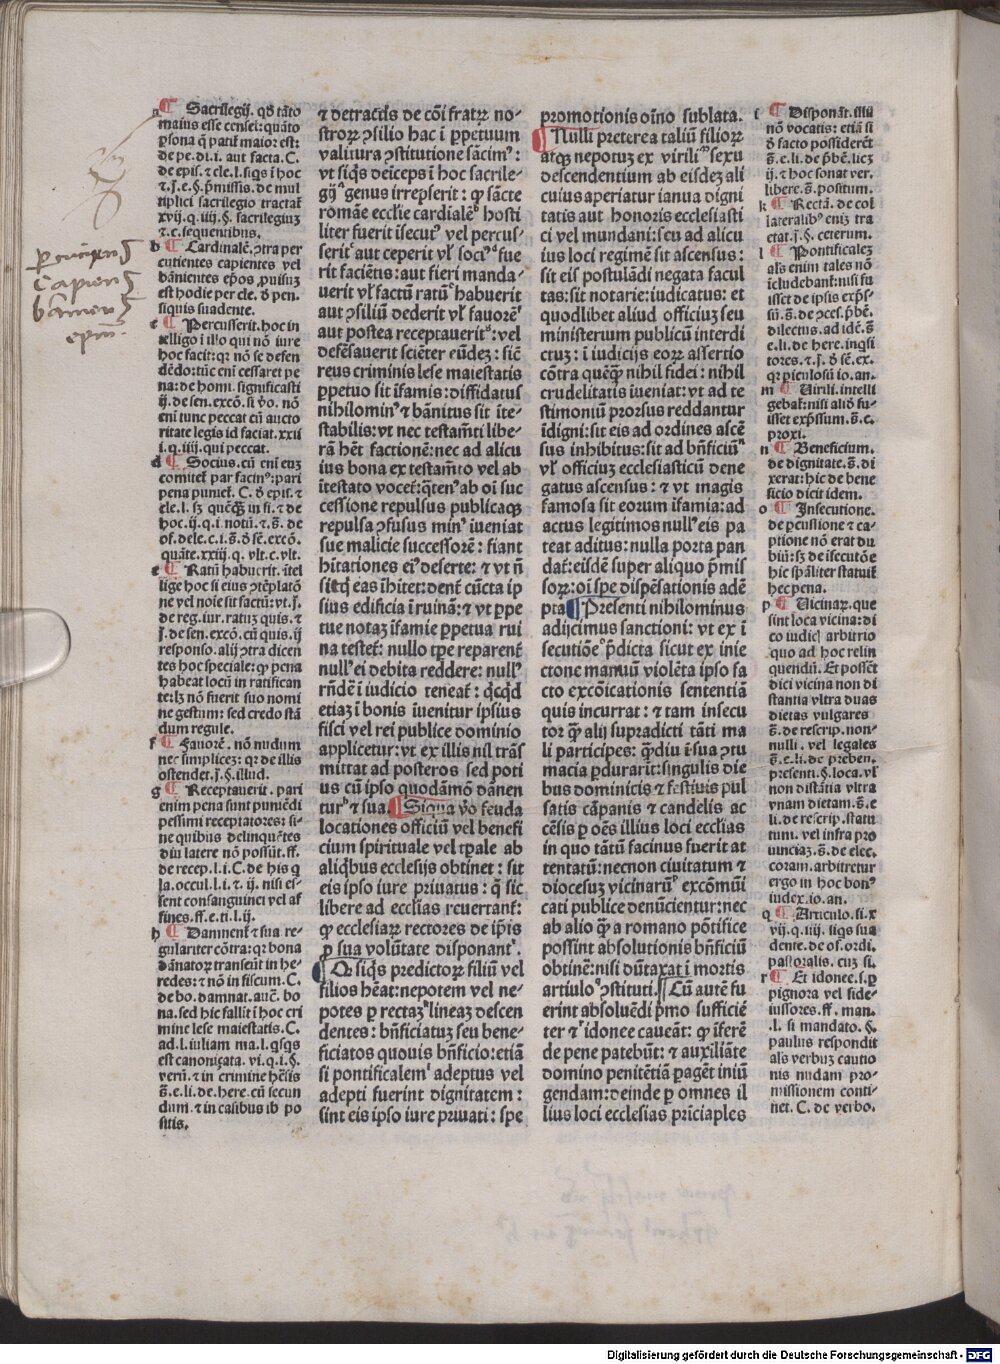 a ¶ Sacrilegij. qđ tãto
maius esse censeĩ: quãto
ꝑsona q̃ patiť maior est:
de pe. di. i. aut facta. C.
de epis. ⁊ cle. l. siqs i hoc
⁊. j. e. §. p̃missis. de mul
tiplici sacrilegio tractať
xvij. q. iiij. §. sacrilegiuʒ
⁊. c. sequentibus.
b ¶ Cardinalẽ. ↄtra per
cutientes capientes vel
bãnientes ep̃os, puisuʒ
est hodie per cle. đ pen.
siquis suadente.
c ¶ Percusserit. hoc in
telligo i illo qui nõ iure
hoc facit: qr nõ se defen
dẽdo: tũc enĩ cessaret pe
na: de homi. significasti
ij. de sen. excõ. si v̊o. nõ
enĩ tunc peccat cũ aucto
ritate legis id faciat. xxij
i. q. iiij. qui peccat.
d ¶ Socius. cũ enĩ euʒ
comiteť par facinꝰ: pari
pena punieť. C. đ epis. ⁊
cle. l. sʒ quẽq̃ʒ in fi. ⁊ de
hoc. ij. q. i notũ. ⁊ g̃. de
of. dele. c. i. g̃. đ sẽ. excõ.
quãte. xxiij. q. vlt. c. vlt.
e ¶ Ratũ habuerit. ĩtel
lige hoc si eius ↄtẽplatõ
ne vel noĩe sit factũ: vt. j.
de reg. iur. ratuʒ quis. ⁊
j. de sen. excõ. cũ quis. ij
responso. alij ↄtra dicen
tes hoc speciale: ꝙ pena
habeat locũ in ratifican
te: lʒ nõ fuerit suo nomi
ne gestum: sed credo stã
dum regule.
f ¶ Fauorẽ. nõ nudum
nec simplicez: qr de illis
ostendet. j. §. illud.
g ¶ Receptauerit. pari
enim pena sunt puniẽdi
pessimi receptatores: si-
ne quibus delinquẽtes
diu latere nõ possũt. ff.
de recep. l. i. C. de his q̃
la. occul. l. i. ⁊. ij. nisi es-
sent consanguinei vel af
fines. ff. e. ti. l. ij.
h ¶ Damnenť ⁊ sua. re-
gulariter cõtra: qr bona
dãnatoꝝ transeũt in he-
redes: ⁊ nõ in fiscum. C.
de bo. damnat. autẽ. bo
na. sed hic fallit i hoc cri
mine lese maiestatis. C.
ad. l. iuliam ma. l. q̃sqs
est canoniçata. vi. q. i. §.
verũ. ⁊ in crimine hẽsis
g̃. e. li. de here. cũ secun
dum. ⁊ in casibus ib po
sitis.
ꝑcuciens
capiens
banniens
epm̃
⁊ detractis de cõi fratrꝝ no-
stroꝝ ↄsilio hac i ꝑpetuum
valitura ↄstitutione sãcimꝰ:
vt siq̃s deiceps i hoc sacrile-
gij genus irrepserit: ꝙ sãcte
romãe ecclie cardialẽ hosti
liter fuerit isecutꝰ vel percus-
serit aut ceperit vł sociꝰ fue
rit faciẽtis: aut fieri manda-
uerit vł factũ ratũ habuerit
aut ↄsiliũ dederit vł fauorẽ
aut postea receptauerit: vel
defẽsauerit sciẽter eũdeʒ: sicẽ
reus criminis lese maiestatis
ꝑpetuo sit ĩfamis: diffidatus
nihilominꝰ ⁊ bãnitus sit ĩte-
stabilis: vt nec testam̃ti libe-
rã hẽť factionẽ: nec ad alicu
ius bona ex testam̃to vel ab
ĩtestato voceť: q̃tenꝰ ab oĩ suc
cessione repulsus publicaq̃ʒ
repulsa ↄfusus minꝰ iueniat
sue malicie successorẽ: fiant
hĩtationes eiꝰ deserte: ⁊ vt ñ
sit q̃ eas ĩhĩtet: denť cũcta ip
sius edificia ĩ ruinã: ⁊ vt ꝑpe
tue notaʒ ĩfamie ꝑpetua rui
na testeť: nullo tꝑe reparenť
nullꝰ ei debita reddere: nullꝰ
rñdẽ ĩ iudicio teneať: q̃cq̃d
etiaʒ ĩ bonis iuenitur ipsius
fisci vel rei publice dominio
applicetur: vt ex illis nil trãs
mittat ad posteros sed poti
us cũ ipso quodãmõ dãnen
tur ⁊ sua. ¶ Siqua v̊o feuda
locationes officiũ vel benefi
cium spirituale vel tꝑale ab
aliq̃bus ecclesijs obtinet: sit
eis ipso iure priuatus: q̃ sic
libere ad ecclias reuertanť:
ꝙ ecclesiaꝝ rectores de ip̃is
ꝓ sua volũtate disponant.
¶ Q, siq̃s predictoꝝ filiũ vel
filios hẽat: nepotem vel ne-
potes ꝑ rectaʒ lineaʒ descen
dentes: bñficiatuʒ seu bene-
ficiatos quouis bñficio: etiã
si pontificalem adeptus vel
adepti fuerint dignitatem:
sint eis ipso iure priuati: spe
promotionis oĩno sublata.
¶ Nulli preterea taliũ filioꝝ
atq̃ʒ nepotuʒ ex virili sexu
descendentium ab eisdeʒ ali
cuius aperiatur ianua digni
tatis aut honoris ecclesiasti
ci vel mundani: seu ad alicu
ius loci regimẽ sit ascensus:
sit eisꝰ postulãdi negata facul
tas: sit notarie: iudicatus: et
quodlibet aliud officiuʒ seu
ministerium publicũ interdi
ctuʒ: i iudicijs eoꝝ assertio
cõtra quẽq̃ nihil fidei: nihil
crudelitatis iueniat: vt ad te
stimoniũ prorsus reddantur
ĩdigni: sit eis ad ordines ascẽ
sus inhibitus: sit ad bñficiũ
vł officiuʒ ecclesiasticũ dene
gatus ascensus: ⁊ vt magis
famosa sit eorum ĩfamia: ad
actus legitimos nullꝰ eis pa
teat aditus: nulla porta pan
dať: eisdẽ super aliquo p̃mis
soꝝ: oĩ spe dispẽsationis adẽ
pta ¶ Presenti nihilominus
adijcimus sanctioni: vt ex ĩ
secutiõe p̃dicta sicut ex inie
ctone manuũ violẽta ipso fa
cto excõicationis sententiã
quis incurrat: ⁊ tam insecu
tor q̃ alij supradicti tãti ma
li participes: q̃diu ĩ sua ↄtu
macia ꝑdurarĩt: singulis die
bus dominicis ⁊ festiuis pul
satis cãpanis ⁊ candelis ac
cẽsis ꝑ oẽs illius loci ecclias
in quo tãtũ facinus fuerit at
tentatũ: necnon ciuitatum ⁊
diocesuʒ vicinarũ excõmũi
cati publice denũcientur: nec
ab alio q̃ a romano põtifice
possint absolutionis bñficiũ
obtinẽ: nisi dũtaxat i mortis
artiulo ↄstituti. ¶ Cũ autẽ fu
erint absoluẽdi p̃mo sufficiẽ
ter ⁊ idonee caueãt: ꝙ ĩferẽ
de pene patebũt: ⁊ auxiliãte
domino penitẽtiã ꝑagẽt iniũ
gendam: deinde ꝑ omnes il
lius loci ecclesias pricipales
i ¶ Disponãt. illũ
nõ vocatis: etiã si
đ facto possiderẽt
g̃. e. li. de p̃bẽ. licʒ
ij. ⁊ hoc sonat ver.
libere. g̃. positum.
k ¶ Rectã. de col
lateralibꝰ eniʒ tra
ctat. j. §. ceterum.
l ¶ Pontificaleʒ
als enim tales nõ
ĩcludebanť: nisi fu
isset de ipsis exp̃s-
sũ. g̃. de ↄces. p̃bẽ.
dilectus. ad idẽ. g̃
e. li. de here. inq̃si
tores. ⁊. j. đ sẽ. ex.
qr piculosũ io. an.
m ¶ Uirili. intelli
gebať: nisi aliđ fu-
isset exp̃ssum. g̃. c.
proxi.
n ¶ Beneficium.
de dignitate. g̃. di
xerat: hic de bene
ficio dicit idem.
o ¶ Insecutione.
de ꝑcussione ⁊ ca-
ptione nõ erat du
biũ: sʒ de isecutõe
hic sp̃aliter statuiť
hec pena.
p ¶ Uicinaꝝ. que
sint loca vicina: di
co iudicĩ arbitrio
quo ad hoc relin
quendũ. Et possẽt
dici vicina non di
stantia vltra duas
dietas vulgares
g̃. de rescrip. non-
nulli. vel legales
g̃. e. li. de preben.
presenti. §. loca. vł
non distãtia vltra
vnam dietam. g̃. e
li. de rescrip. statu
tum. vel infra pro
uinciaʒ. g̃. de elec.
coram. arbitretur
ergo in hoc bonꝰ
iudex. io. an.
q ¶ Articulo. si. x
vij. q. iiij. siqs sua
dente. de of. ordi.
pastoralis. cuʒ si.
r ¶ Et idonee. s. ꝑ
pignora vel fide-
iussores. ff. man.
l. si mandato. §.
paulus respondit
als verbuʒ cautio
nis nudam pro-
missionem conti-
net. C. de verbo.
Digitalisierung gefördert durch die Deutsche Forschungsgemeinschaft - DFG